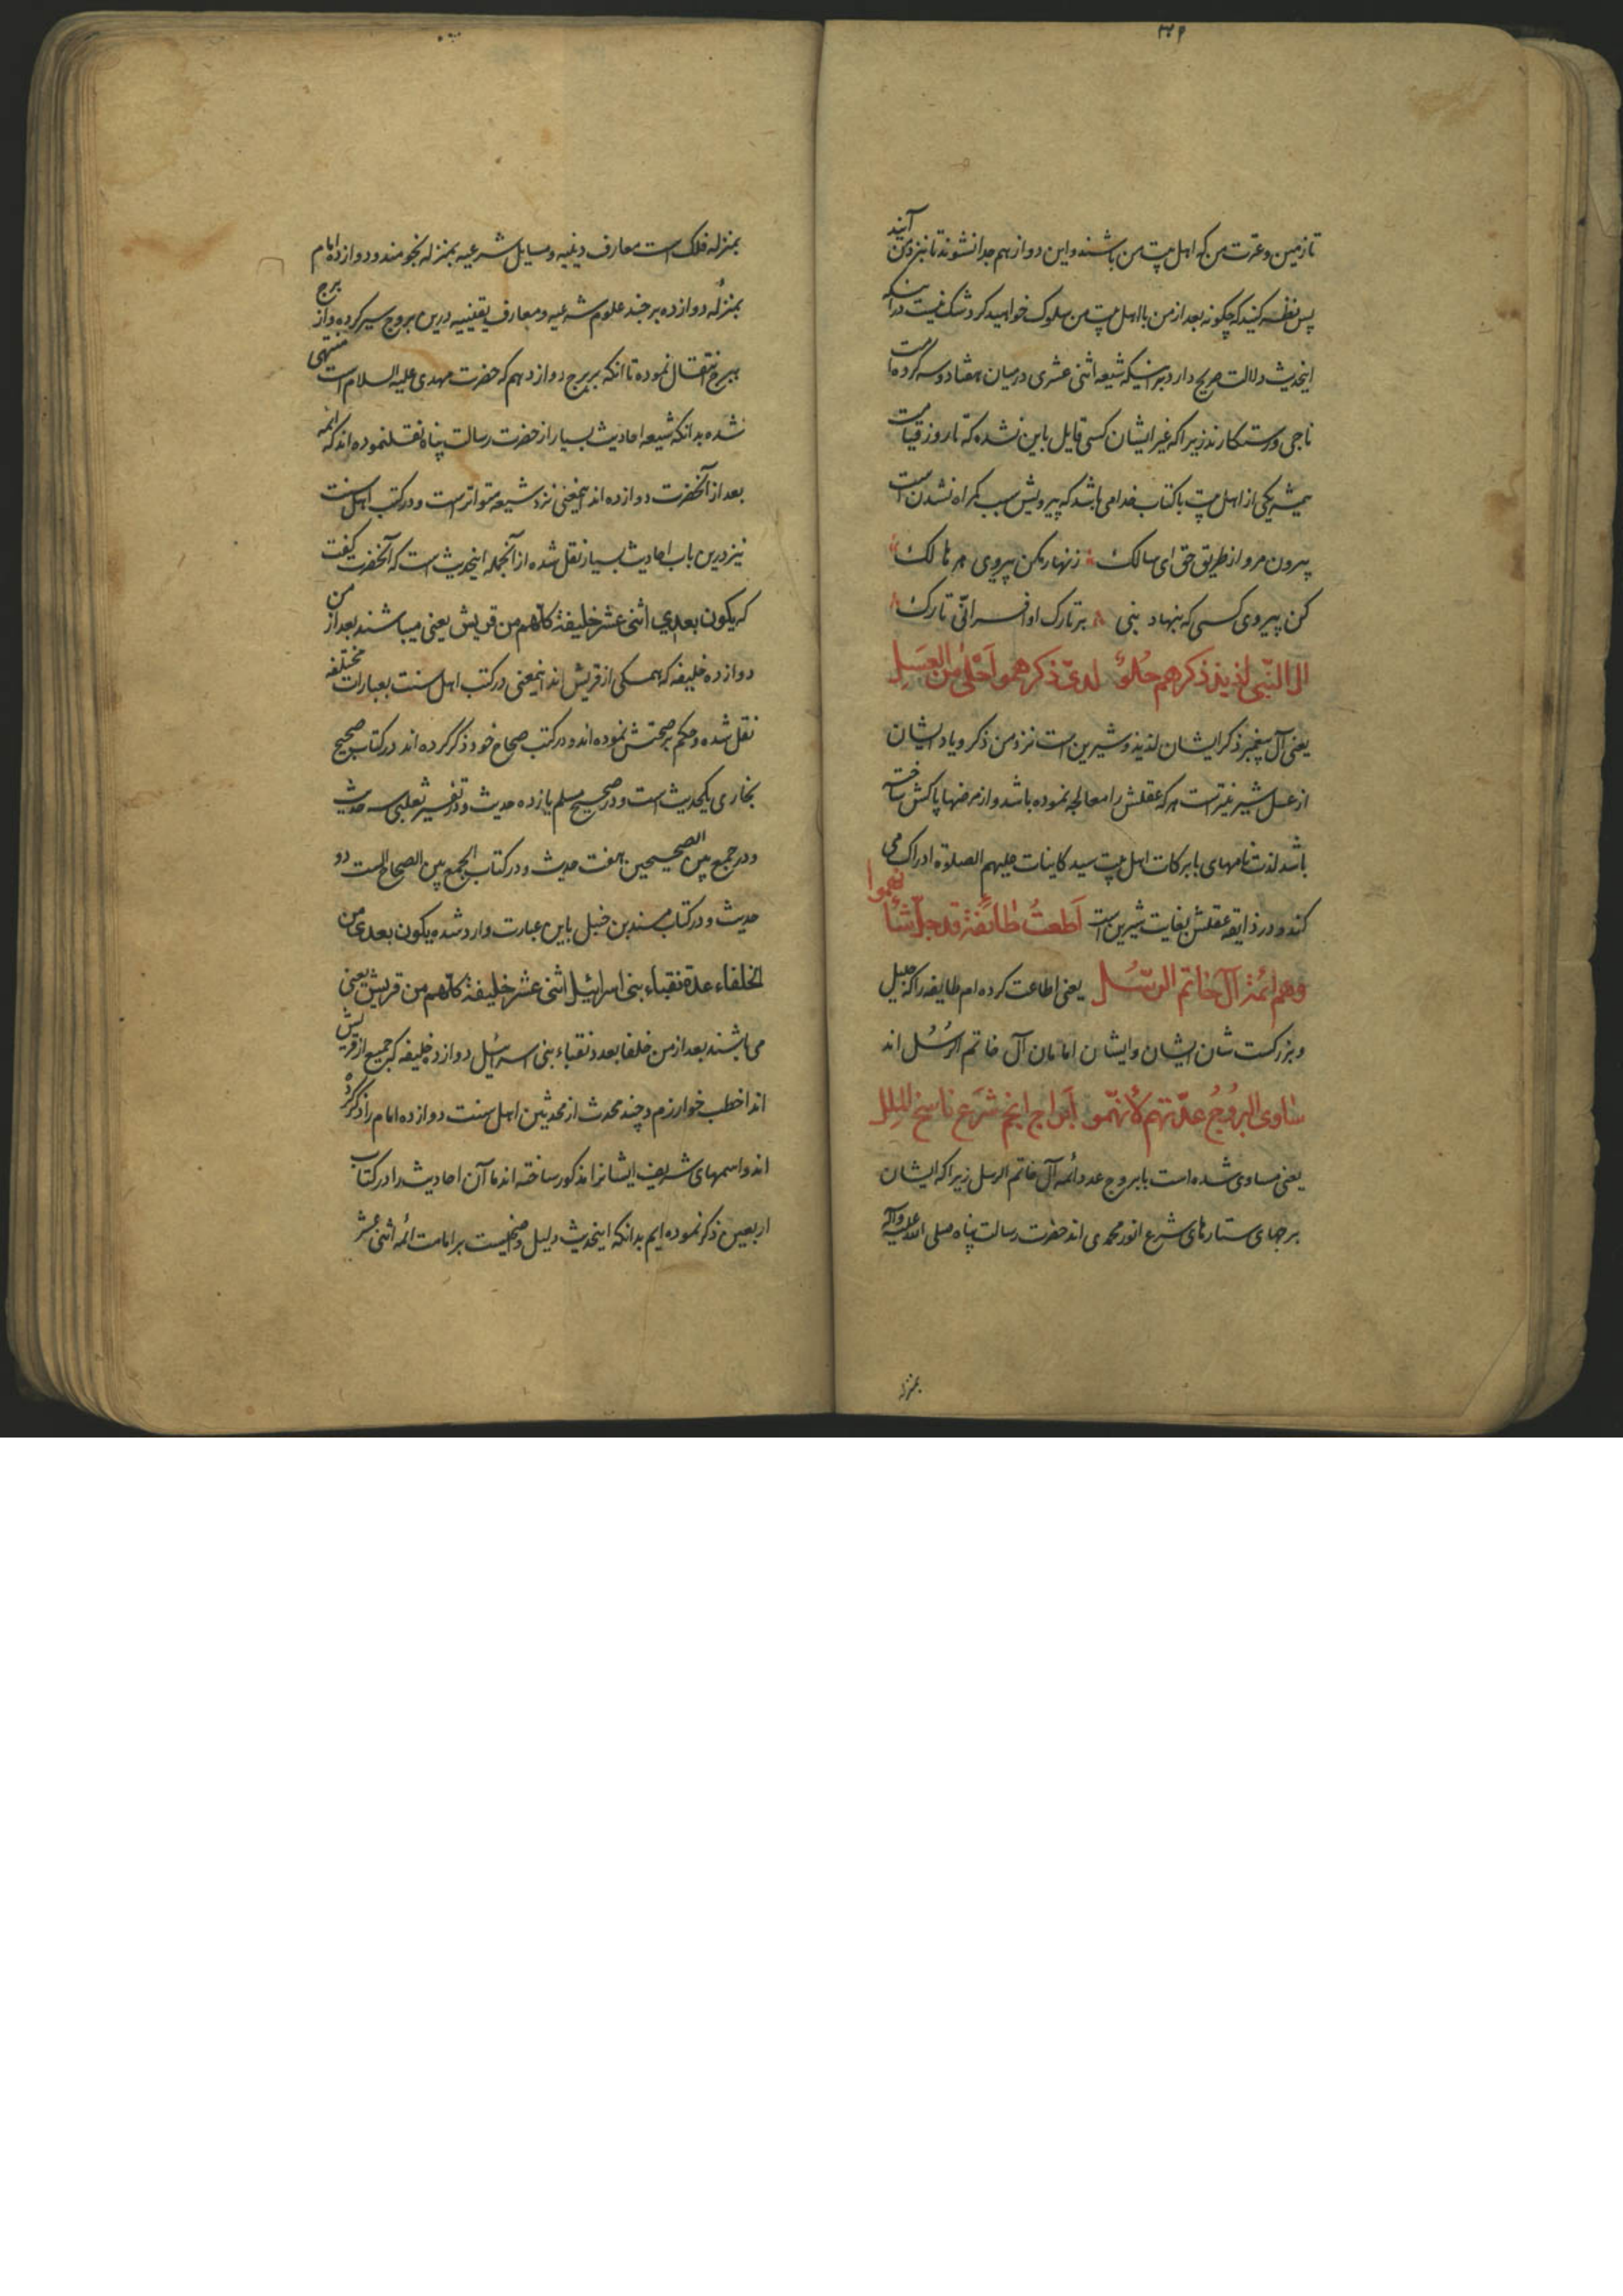 ۳۴۹
تا زمین و عترت من که اهل بیت من باشند و این دو از هم جدا نشوند تا بنزد من آیند
پس نظر کنید که چگونه بعد از من با اهل بیت من سلوک خواهید کرد و شک نیست در اینکه
اینحدیث دلالت صریح دارد بر اینکه شیعه اثنی عشری در میان هفتاد و سه گروه
ناجی و رستکارند زیرا که غیر ایشان کسی قایل باین نشده که تا روز قیامت
همیشه یکی از اهل بیت با کتاب خدا می باشد که پیرویش سبب گمراه نشدن است
بیرون مرو از طریق حق ای سالک زنهار مکن پیروی هر هالک
کن پیروی کسی که بنهاد نبی بر تارک او افسر انی تارک
ال النبی لذیذ ذکرهم حلو لدی ذکرهمو احلی من العسل
یعنی آل پیغمبر ذکر ایشان لذیذ و شیرین است نزد من ذکر و یاد ایشان
از عسل شیرینتر است هر که عقلش را معالجه نموده باشد و از مرضها پاکش ساخته
باشد لذت نامهای با برکات اهل بیت سید کاینات علیهم الصلوة ادراک می
کند و در ذایقه عقلش بغایت شیرین است اَطَعتُ طائفة قد جل شأنهموا
وهم ائمة آل خاتم الرسل یعنی اطاعت کرده ام طایفه را که جلیل
و بزرگست شان ایشان و ایشان امامان آل خاتم الرسُل اند
ساوی البروج عدتهم لأنهمو ابراج انجم شرع ناسخ الملل
یعنی مساوی شده است با بروج عدد ائمه آل خاتم الرسل زیرا که ایشان
برجهای ستارهای شرع انور محمدی اند حضرت رسالت پناه صلی الله علیه وآله
بمنزله
بمنزله فلک است معارف دینیه و مسایل شرعیه بمنزله نجومند و دوازده امام
بمنزله دوازده برجند علوم شرعیه و معارف یقینیه درین بروج سیر کرده و از برج
ببرج انتقال نموده تا آنکه ببرج دوازدهم که حضرت مهدی علیه السلام است منتهی
شده بدانکه شیعه احادیث بسیار از حضرت رسالت پناه نقل نموده اند که ائمه
بعد از آنحضرت دوازده اند اینمعنی نزد شیعه متواتر است و در کتب اهل سنت
نیز درین باب احادیث بسیار نقل شده از آنجمله اینحدیث است که آنحضرت گفت
که یکون بعدی اثنی عشر خلیفة کلهم من قریش یعنی میباشند بعد از من
دوازده خلیفه که همگی از قریش اند اینمعنی در کتب اهل سنت بعبارات مختلفه
نقل شده و حکم بر صحتش نموده اند و در کتب صحاح خود ذکر کرده اند در کتاب صحیح
بخاری یکحدیث است و در صحیح مسلم یازده حدیث و در تفسیر ثعلبی سه حدیث
و در جمع بین الصحیحین هفت حدیث و در کتاب الجمع بین الصحاح الست دو
حدیث و در کتاب مسند بن حنبل باین عبارت وارد شده یکون بعدی من
الخلفاء عدة نقباء بنی اسرائیل اثنی عشر خلیفة کلهم من قریش یعنی
می باشند بعد از من خلفا بعدد نقباء بنی اسرائیل دوازده خلیفه که جمیع از قریش
اند اخطب خوارزم و چند محدث از محدثین اهل سنت دوازده امام را ذکر کرده
اند و اسمهای شریف ایشانرا مذکور ساخته اند ما آن احادیث را در کتاب
اربعین ذکر نموده ایم بدانکه اینحدیث دلیل واضحیست بر امامت ائمه اثنی عشر